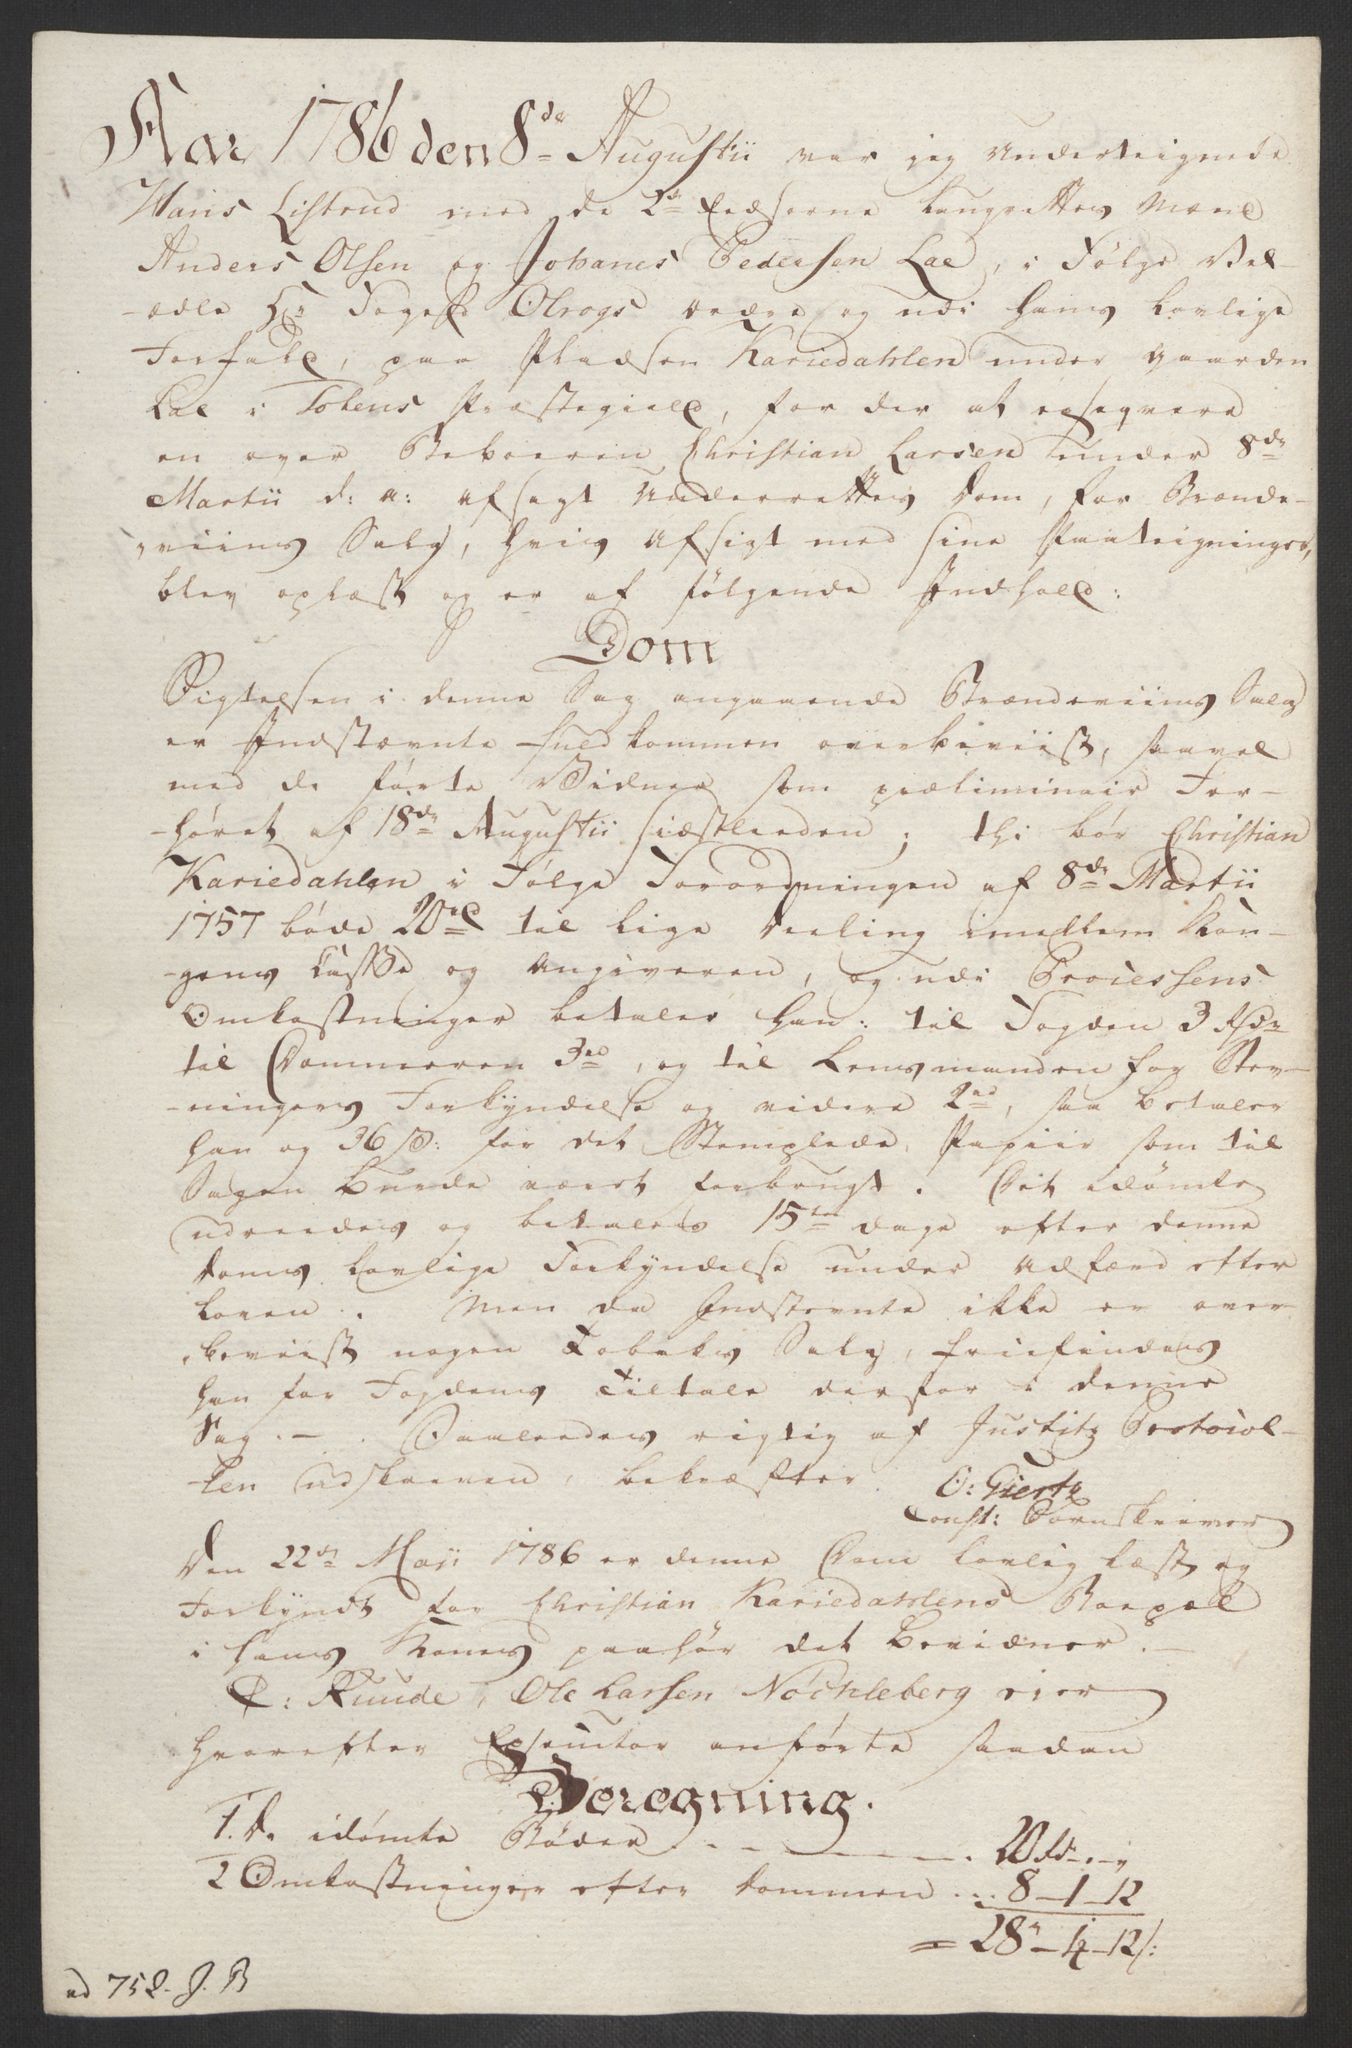 Aar 1786 den 8de Augustii var jeg underteignede
Hans Listrud med de 2de Eedsorne Laugrettes Mænd
Anders Olsen og Johanes Pedersen Lae, i Følge Vel-
-ædle Hr Foged Olrogs ordre og udi hans lovlige
Forfald, paa Pladsen Kariedahlen under Gaarden
Lae i Totens Præstegield, for der at exseqvere
en over Beboeren Christian Larsen under 8de
Martii d: a: afsagt Underrettes Dom, for Brænde-
-viins Salg, hvis Afsigt med sine Paateigninger,
blev oplæst og er af følgende Indhold:
Dom
Sigtelsen i denne Sag angaaende Brændeviins Salg
er Indstævnte fuldkommen overbeviist, saavel
med de førte Vidner som præliminair For-
-høret af 18de Augustii siæstleeden; thi bør Christian
Kariedahlen i Følge Forordningen af 8de Martii
1757 bøde 20rd til lige Deeling imellem Kon-
-gens Casse og Angiveren, og udi Processens
Omkostninger betaler han: til Fogden 3 Rdr
til Dommeren 3rd, og til Lensmanden for Stev-
-ningens Forkyndelse og videre 2rd, saa betaler
han og 36 s: for det Stemplede Papiir som til
Sagen burde været forbrugt. Det idømte
udreedes og betales 15ten dage efter denne
Doms lovlige Forkyndelse under Adfærd efter
Loven. Men da Indstevnte ikke er over-
-beviist nogen Tobaks Salg, friefindes
han for Fogdens Tiltale derfor i denne
Sag. — Saaleedes rigtig af Justitz Protocol-
-len udskreven, bekræfter O: Giertz
Const: Sorenskriver
Den 22de Maji 1786 er denne Dom lovlig læst og
Forkyndt for Christian Kariedahlens Boepæl
i hans Kones paahør det bevidner. —
C: Ruude, Ole Larsen Nöchleberg eier
hvorefter Exsecutor anførte saadan
Beregning.
1. De idømte Bøder . . . 20 Rd - „ - „
2 Omkostninger efter Dommen . . . 8 – 1 – 12
= 28„ – 1 – 12 s:
ad 752. J. B